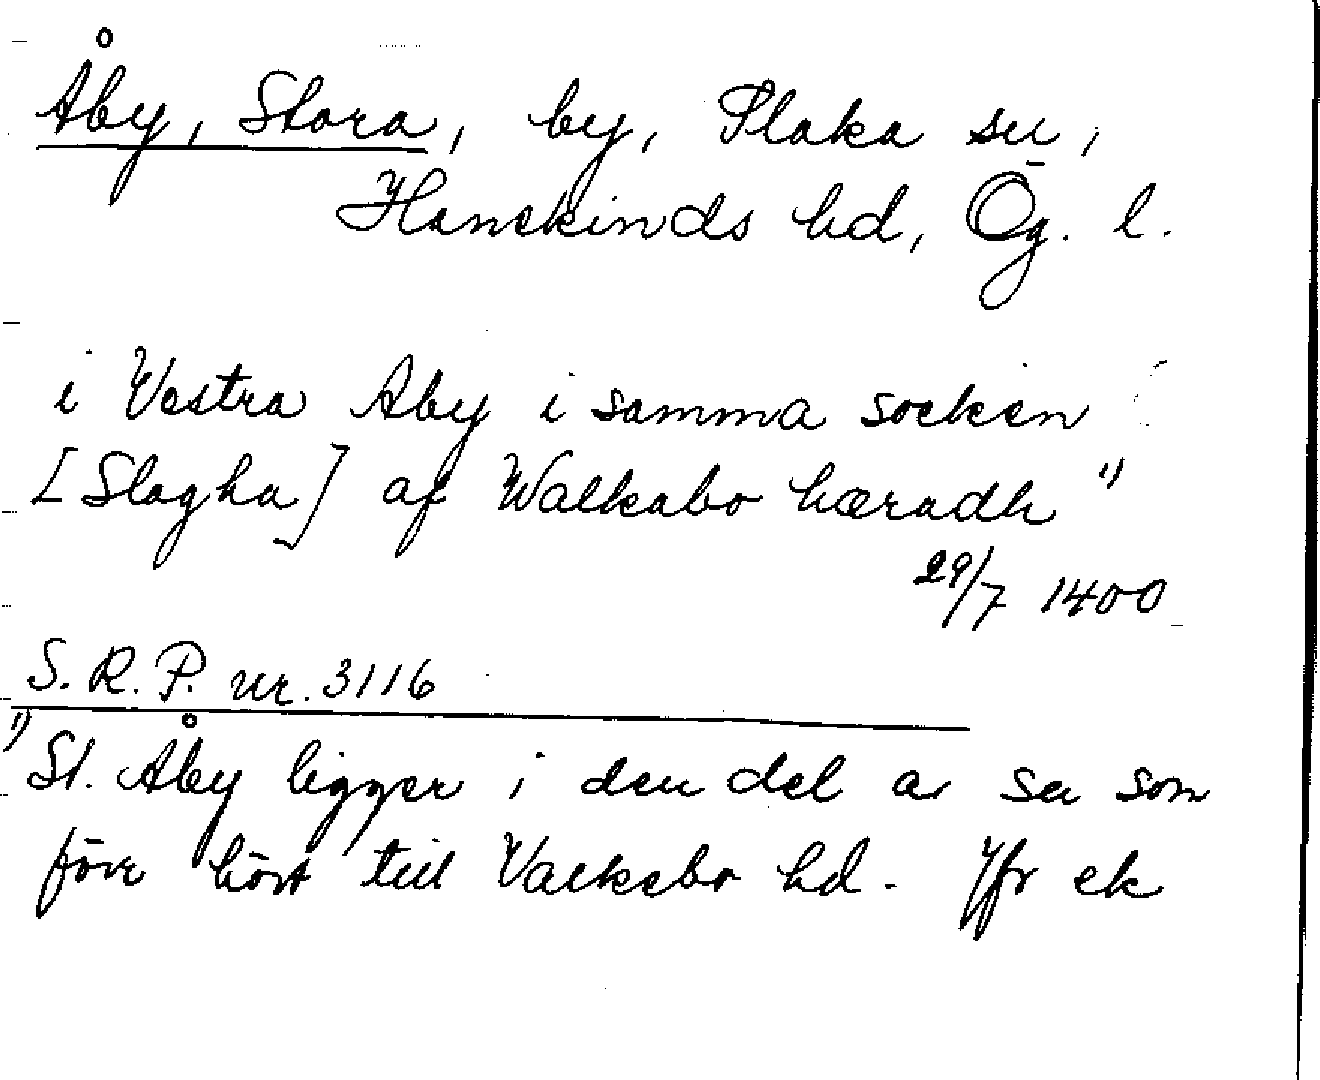 Åby, Stora, by, Slaka sn,
Hanekinds hd, Ög. l.
i Vestra Aby i samma socken
[Slagha] af Walkabo hæradh 1)
29/7 1400
S. R. P. nr. 3116
1) St. Åby ligger i den del av sn som
förr hört till Valkebo hd. Jfr ek